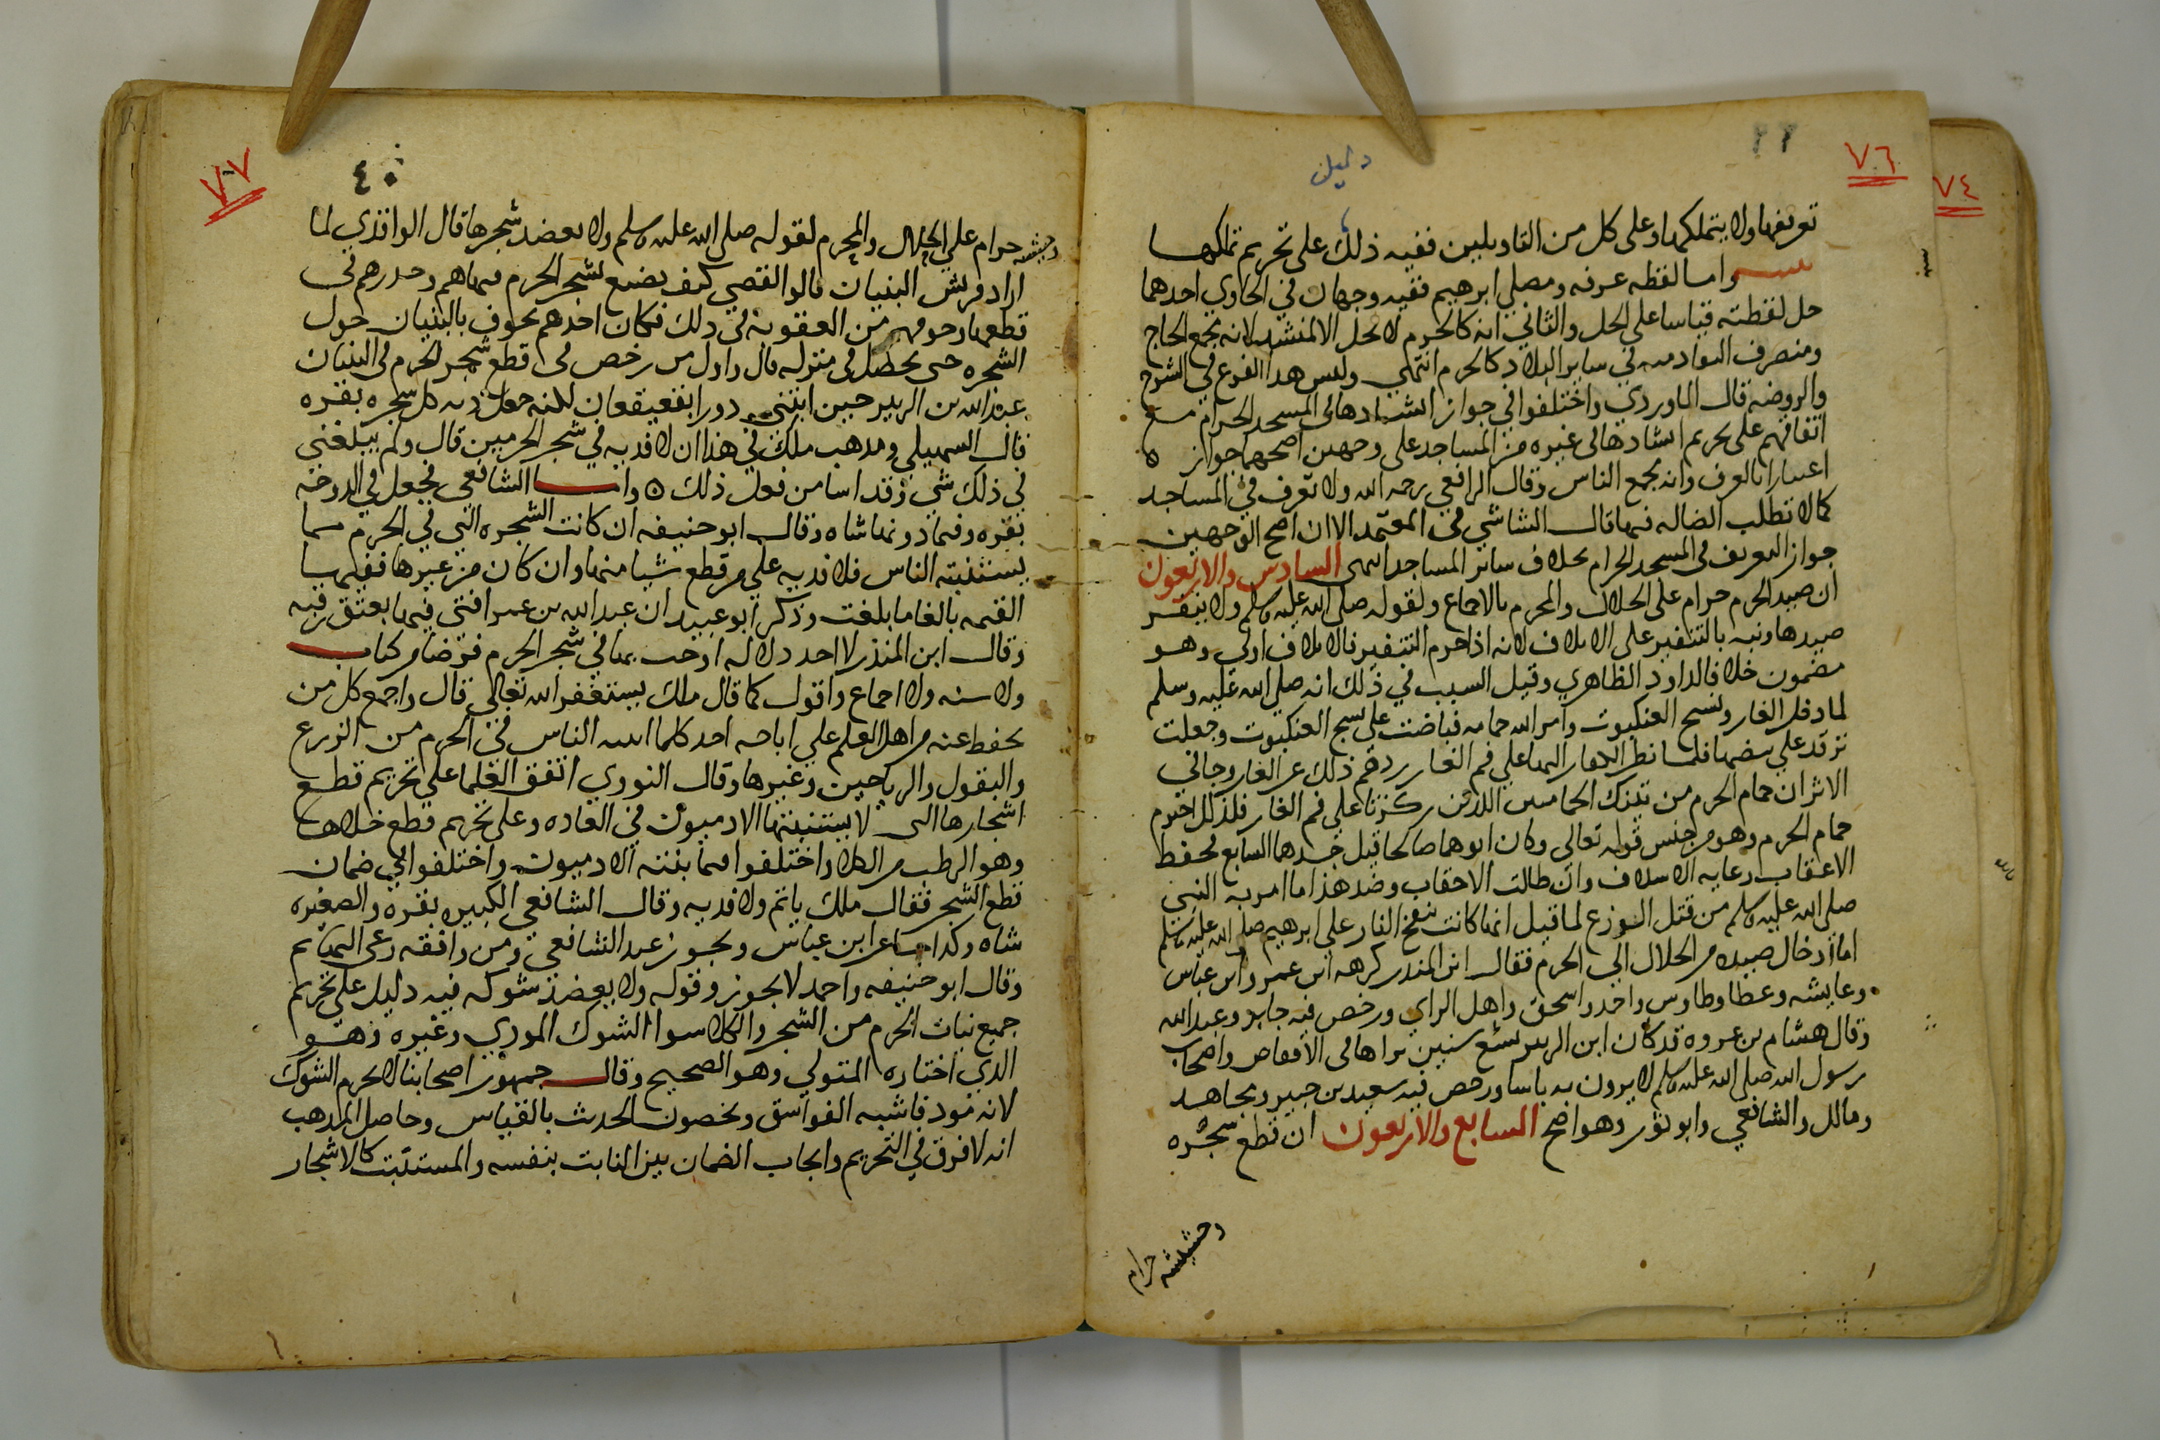 ٧٦
٧٤
دليل
تعريفها ولا يتملكها وعلى كل من التاويلين ففيه ذلك على تحريم تملكها
واما لقطه عرفه ومصلي ابرهيم ففيه وجهان في الحاوي احدهما
حل لقطته قياسا على الحل والثاني انه كالحرم لا تحل الا لمنشد لانه مجمع الحاج
ومنصرف في ساير البلاد كالحرم انتهى وليس هذا الفرع في الشرح
والروضه قال الماوردي واختلفوا في جواز انشادها في المسجد الحرام مع
اتفاقهم على تحريم انشادها في غيره من المساجد على وجهين اصحهما جوازه
اعتبارا بالعرف وانه مجمع الناس وقال الرافعي رحمه الله ولا تعرف في المساجد
كما لا تطلب الضاله فيها قال الشاشي في المعتمد الا ان اصح الوجهين
جواز التعريف في المسجد الحرام بخلاف سائر المساجد انتهى السادس والاربعون
ان صيد الحرم حرام على الحلال والمحرم بالاجماع ولقوله صلى الله عليه وسلم ولا ينفر
صيدها ونبه بالتنفير على الاتلاف لانه اذا حرم التنفير فالاتلاف اولى وهو
مضمون خلافا لداود الظاهري وقيل السبب في ذلك انه صلى الله عليه وسلم
لما دخل الغار ونسج العنكبوت وامر الله حمامه فباضت على نسج العنكبوت وجعلت
ترقد على بيضها فلما نظر الكفار اليها على فم الغار ردهم ذلك عن الغار وجا في
الاثر ان حمام الحرم من تينك الحمامتين اللتين ركزتا على فم الغار فلذلك احترم
حمام الحرم وهو من جنس قوله تعالى وكان ابوهما صالحا قيل جدهما السابع لحفظ
الاعقاب رعايه الاسلاف وان طالت الاحقاب وضد هذا ما امر به النبي
صلى الله عليه وسلم من قتل الوزغ لما قيل انها كانت تنفخ النار على ابرهيم صلى الله عليه وسلم
اما ادخال صيده من الحلال الى الحرم فقال ابن المنذر كرهه ابن عمر وابن عباس
وعايشه وعطا وطاوس واحمد واسحق واهل الراي ورخص فيه جابر وعبد الله
وقال هشام بن عروه قد كان ابن الزبير تسع سنين يراها في الاقفاص واصحاب
رسول الله صلى الله عليه وسلم لا يرون به باسا ورخص فيه سعيد بن جبير ومجاهد
ومالك والشافعي وابو ثور وهو اصح السابع والاربعون ان قطع شجره
وحشيشه حرام
٧٧
٤٠
وحشيشه حرام على الحلال والمحرم لقوله صلى الله عليه وسلم ولا يعضد شجرها قال الواقدي لما
اراد قريش البنيان قالوا لقصي كيف نصنع لشجر الحرم فنهاهم وحذرهم في
قطعها وخوفهم من العقوبه في ذلك فكان احدهم يحوف بالبنيان حول
الشجره حتى يحصل في منزله قال واول من رخص في قطع شجر الحرم في البنيان
عبد الله بن الزبير حين ابتنى دورا بقعيقعان لكنه جعل ديه كل شجره بقره
قال السهيلي ومذهب ملك في هذا ان لا فديه في شجر الحرمين قال ولم يبلغني
في ذلك شي وقد اسا من فعل ذلك ٥ واما الشافعي فجعل في الدوحه
بقره وفيما دونها شاه وقال ابو حنيفه ان كانت الشجره التي في الحرم مما
يستنبته الناس فلا فديه على من قطع شيا منها وان كان من غيرها ففيها
القيمه بالغا ما بلغت وذكر ابو عبيد ان عبد الله بن عمر افتى فيها بعتق رقبه
وقال ابن المنذر لا اجد دلاله اوجب بها في شجر الحرم فرضا من كتاب
ولا سنه ولا اجماع واقول كما قال ملك يستغفر الله تعالى قال واجمع كل من
يحفظ عنه من اهل العلم على اباحه اخذ كلما انبته الناس في الحرم من الزرع
والبقول والرياحين وغيرها وقال النووي اتفق العلما على تحريم قطع
اشجارها التي لا يستنبتها الادميون في العاده وعلى تحريم قطع خلاها
وهو الرطب من الكلا واختلفوا فيما ينبته الادميون واختلفوا في ضمان
قطع الشجر فقال ملك ياثم ولا فديه وقال الشافعي الكبيره بقره والصغيره
شاه وكذا جا عن ابن عباس ويجوز عند الشافعي ومن وافقه رعي البهايم
وقال ابو حنيفه واحمد لا يجوز وقوله ولا يعضد شوكه فيه دليل على تحريم
جميع نبات الحرم من الشجر والكلا سوا الشوك الموذي وغيره وهو
الذي اختاره المتولي وهو الصحيح وقال جمهور اصحابنا لا يحرم الشوك
لانه موذ فاشبه الفواسق ويخصون الحديث بالقياس وحاصل المذهب
انه لا فرق في التحريم وايجاب الضمان بين النابت بنفسه والمستنبت كالاشجار